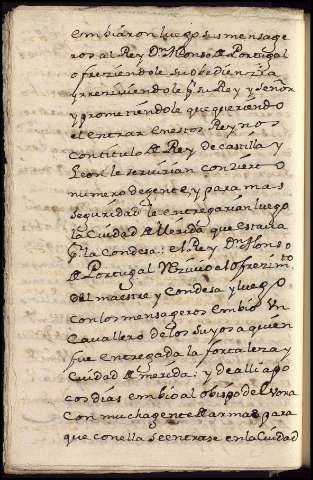 embiaron luego sus mensage
ros al Rey Dn. Alonso de Portugal
ofreziendole su obedienzia
y rreziviendole pr. su Rey y Señor
y prometiendole que queriendo
el entrar en estos Reynos
con titulo de Rey de castilla y
Leon le servirian con zierto
numero de gente, y para mas
seguridad le entregarian luego
la Ciudad de Merida que estava
pr. la Condesa: el Rey Dn. Alonso
de Portugal Rezivio el ofrezimto.
del maestre y Condesa y luego
con los mensageros embio Un
Cavallero de los suyos a quien
fue entregada la fortaleza y
Ciudad de merida: y de alli a po
cos dias embio al obispo de Evora
Con mucha gente de armas para
que con ella se entrase en la Ciudad